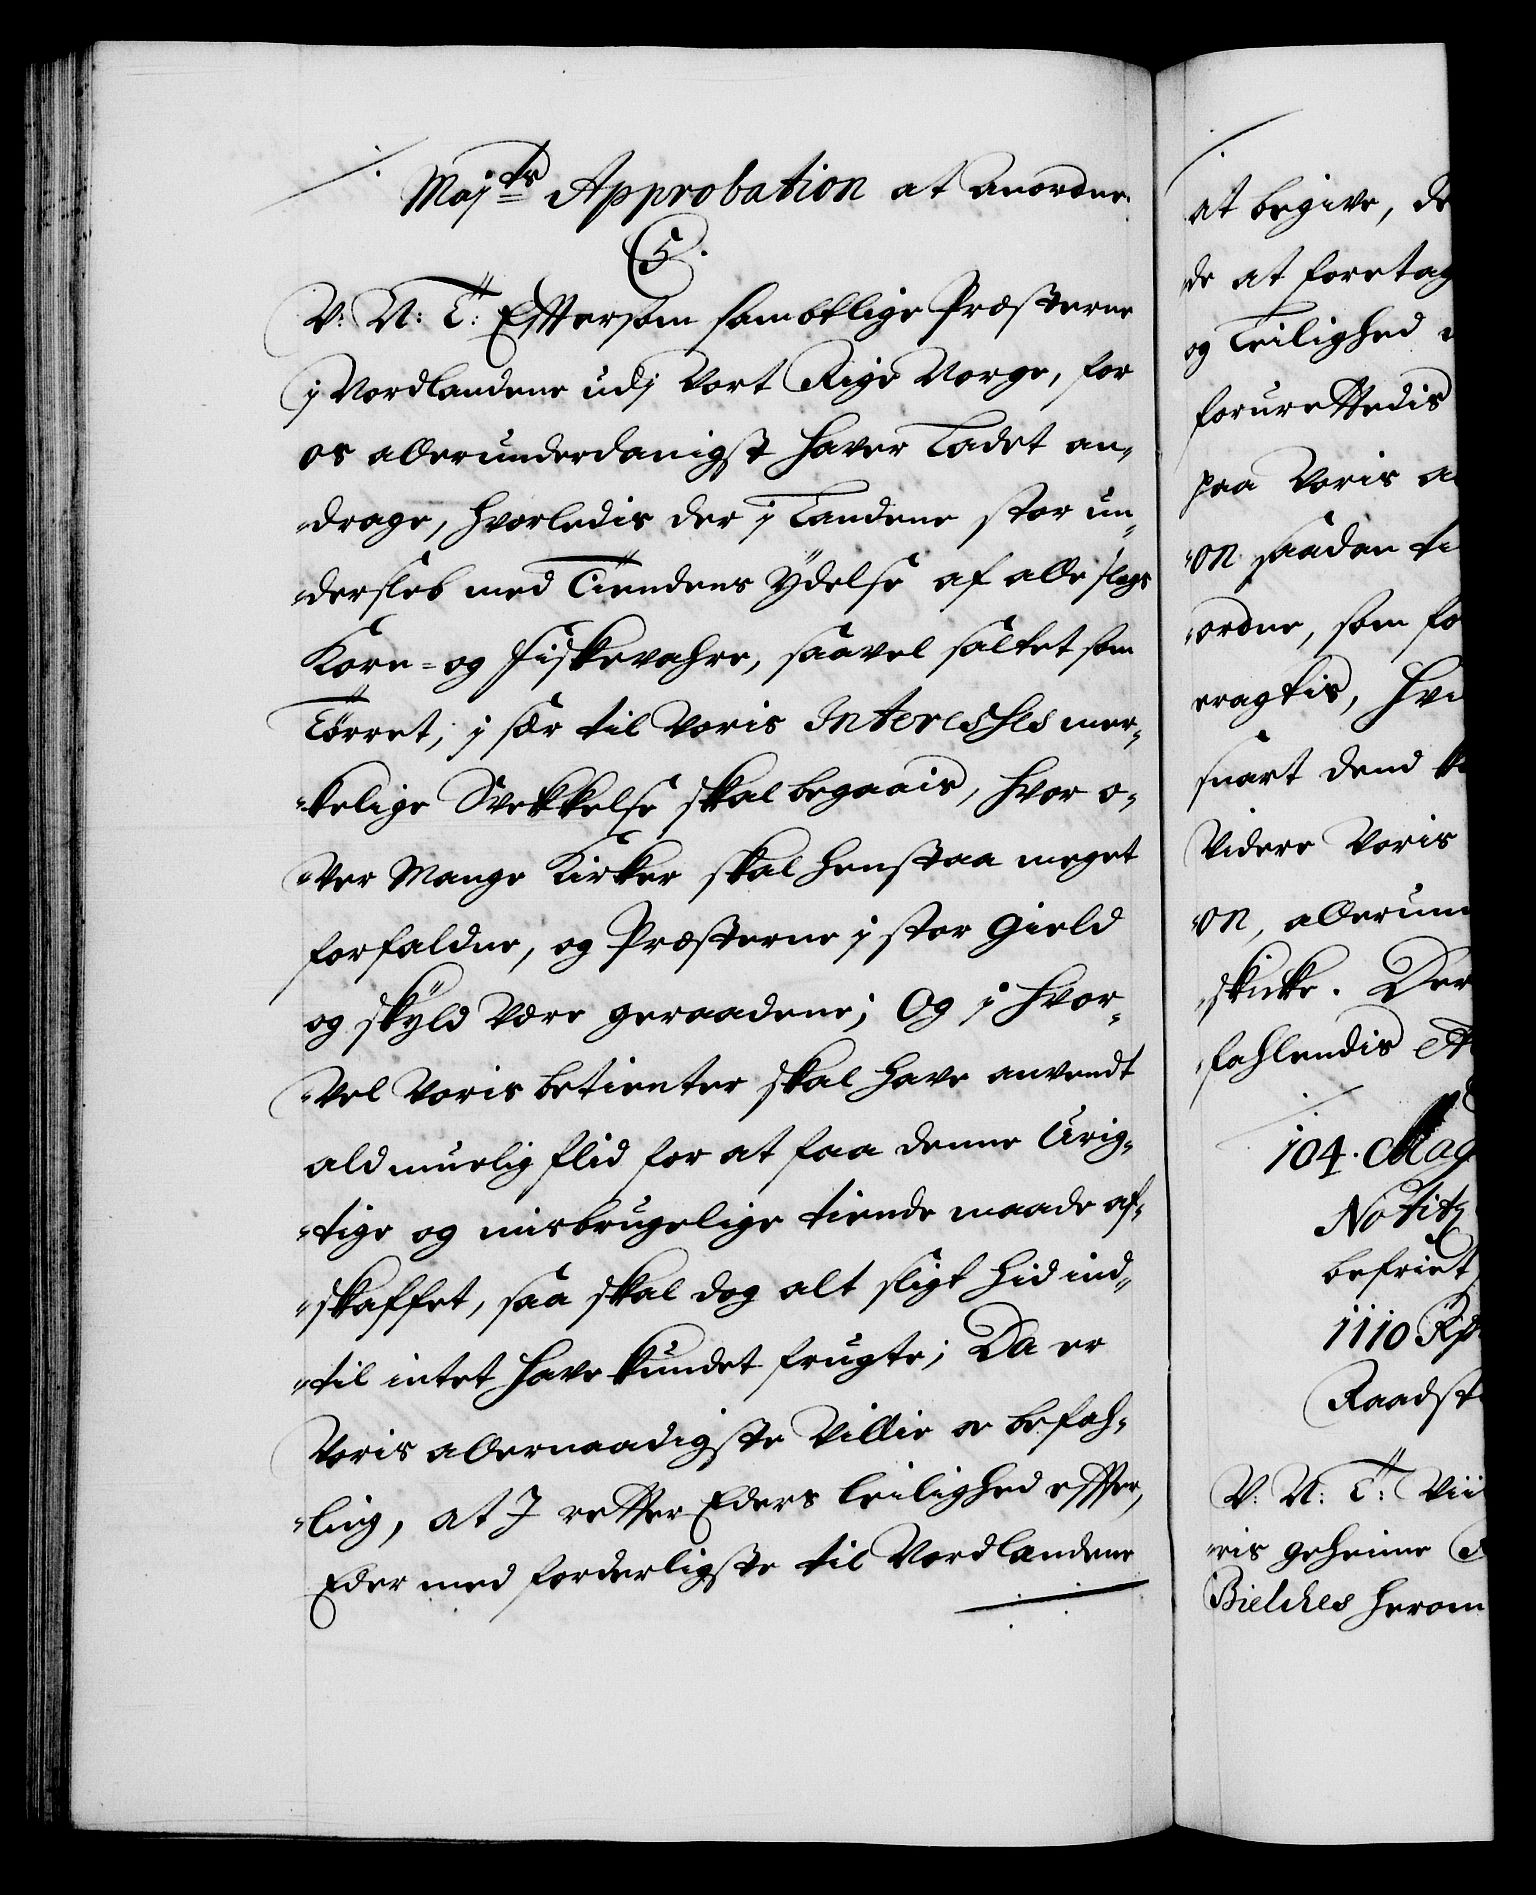 Maj.ts Approbation at anordne.
C5.
V: N: T: Efftersom samtlige Præsterne
j Nordlandene udj Vort Rige Norge, for
os allerunderdanigst haver Ladet an-
drage, hvorledis der j Landene stor un-
dersleb med Tiendens Ydelse af alle slags
Korn- og fiskevahre, saavel saltet som
Törret, j sær til Voris Interesses mer-
kelige Svekkelse skal begaais, hvor o-
ver Mange Kirker skal henstaa meget
forfaldne, og Præsterne j stor Gield
og skyld være geraadene; Og j hvor-
vel Voris betienter skal have anvendt
ald muelig flid for at faa denne Urig-
tige og misbrugelige tiende maade af-
skaffet, saa skal dog alt sligt hid ind-
til intet have kundet frugte; Da er
Voris allernaadigste Villie oc befah-
ling, at J retter Eders leilighed effter,
Eder med forderligste til Nordlandene
at begive, de
de at foretag
og Leilighed
forurettedis
paa Voris a
on saadan ti
ordne, som fo
eragtis, hvi
snart dend k
Videre Voris
on, allerun
skicke. Der
fahlendis
104. Mag
Notitz
befriet
1110 Rd
Raadst
V: N: T: Vii
ris geheime
Bielches herom